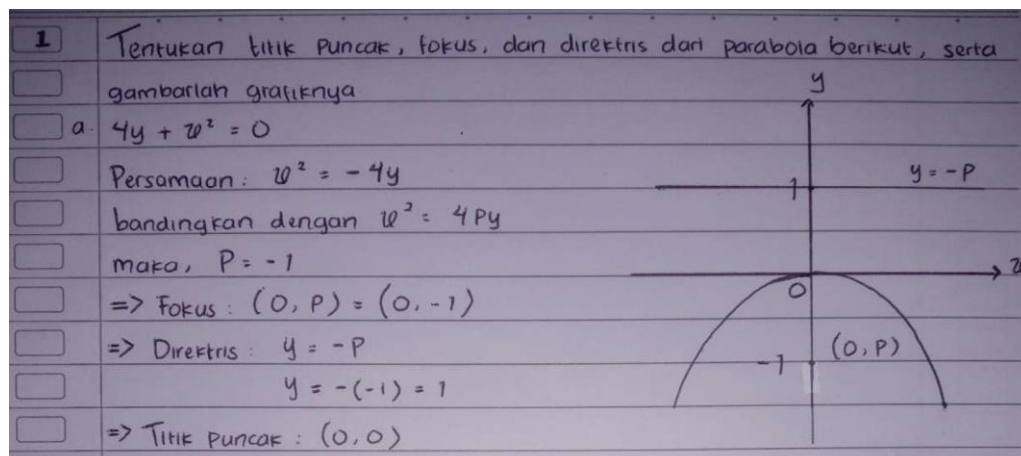 1 Tentukan titik puncak, fokus, dan direktris dari parabola berikut, serta
gambarlah grafiknya
a. 4y + x² = 0
Persamaan : x² = - 4y
bandingkan dengan x² = 4Py
maka, P = - 1
=> Fokus : (0, P) = (0, -1)
=> Direktris : y = -P
y = -(-1) = 1
=> Titik puncak : (0,0)
y
y = -P
1
x
0
(0,P)
-1